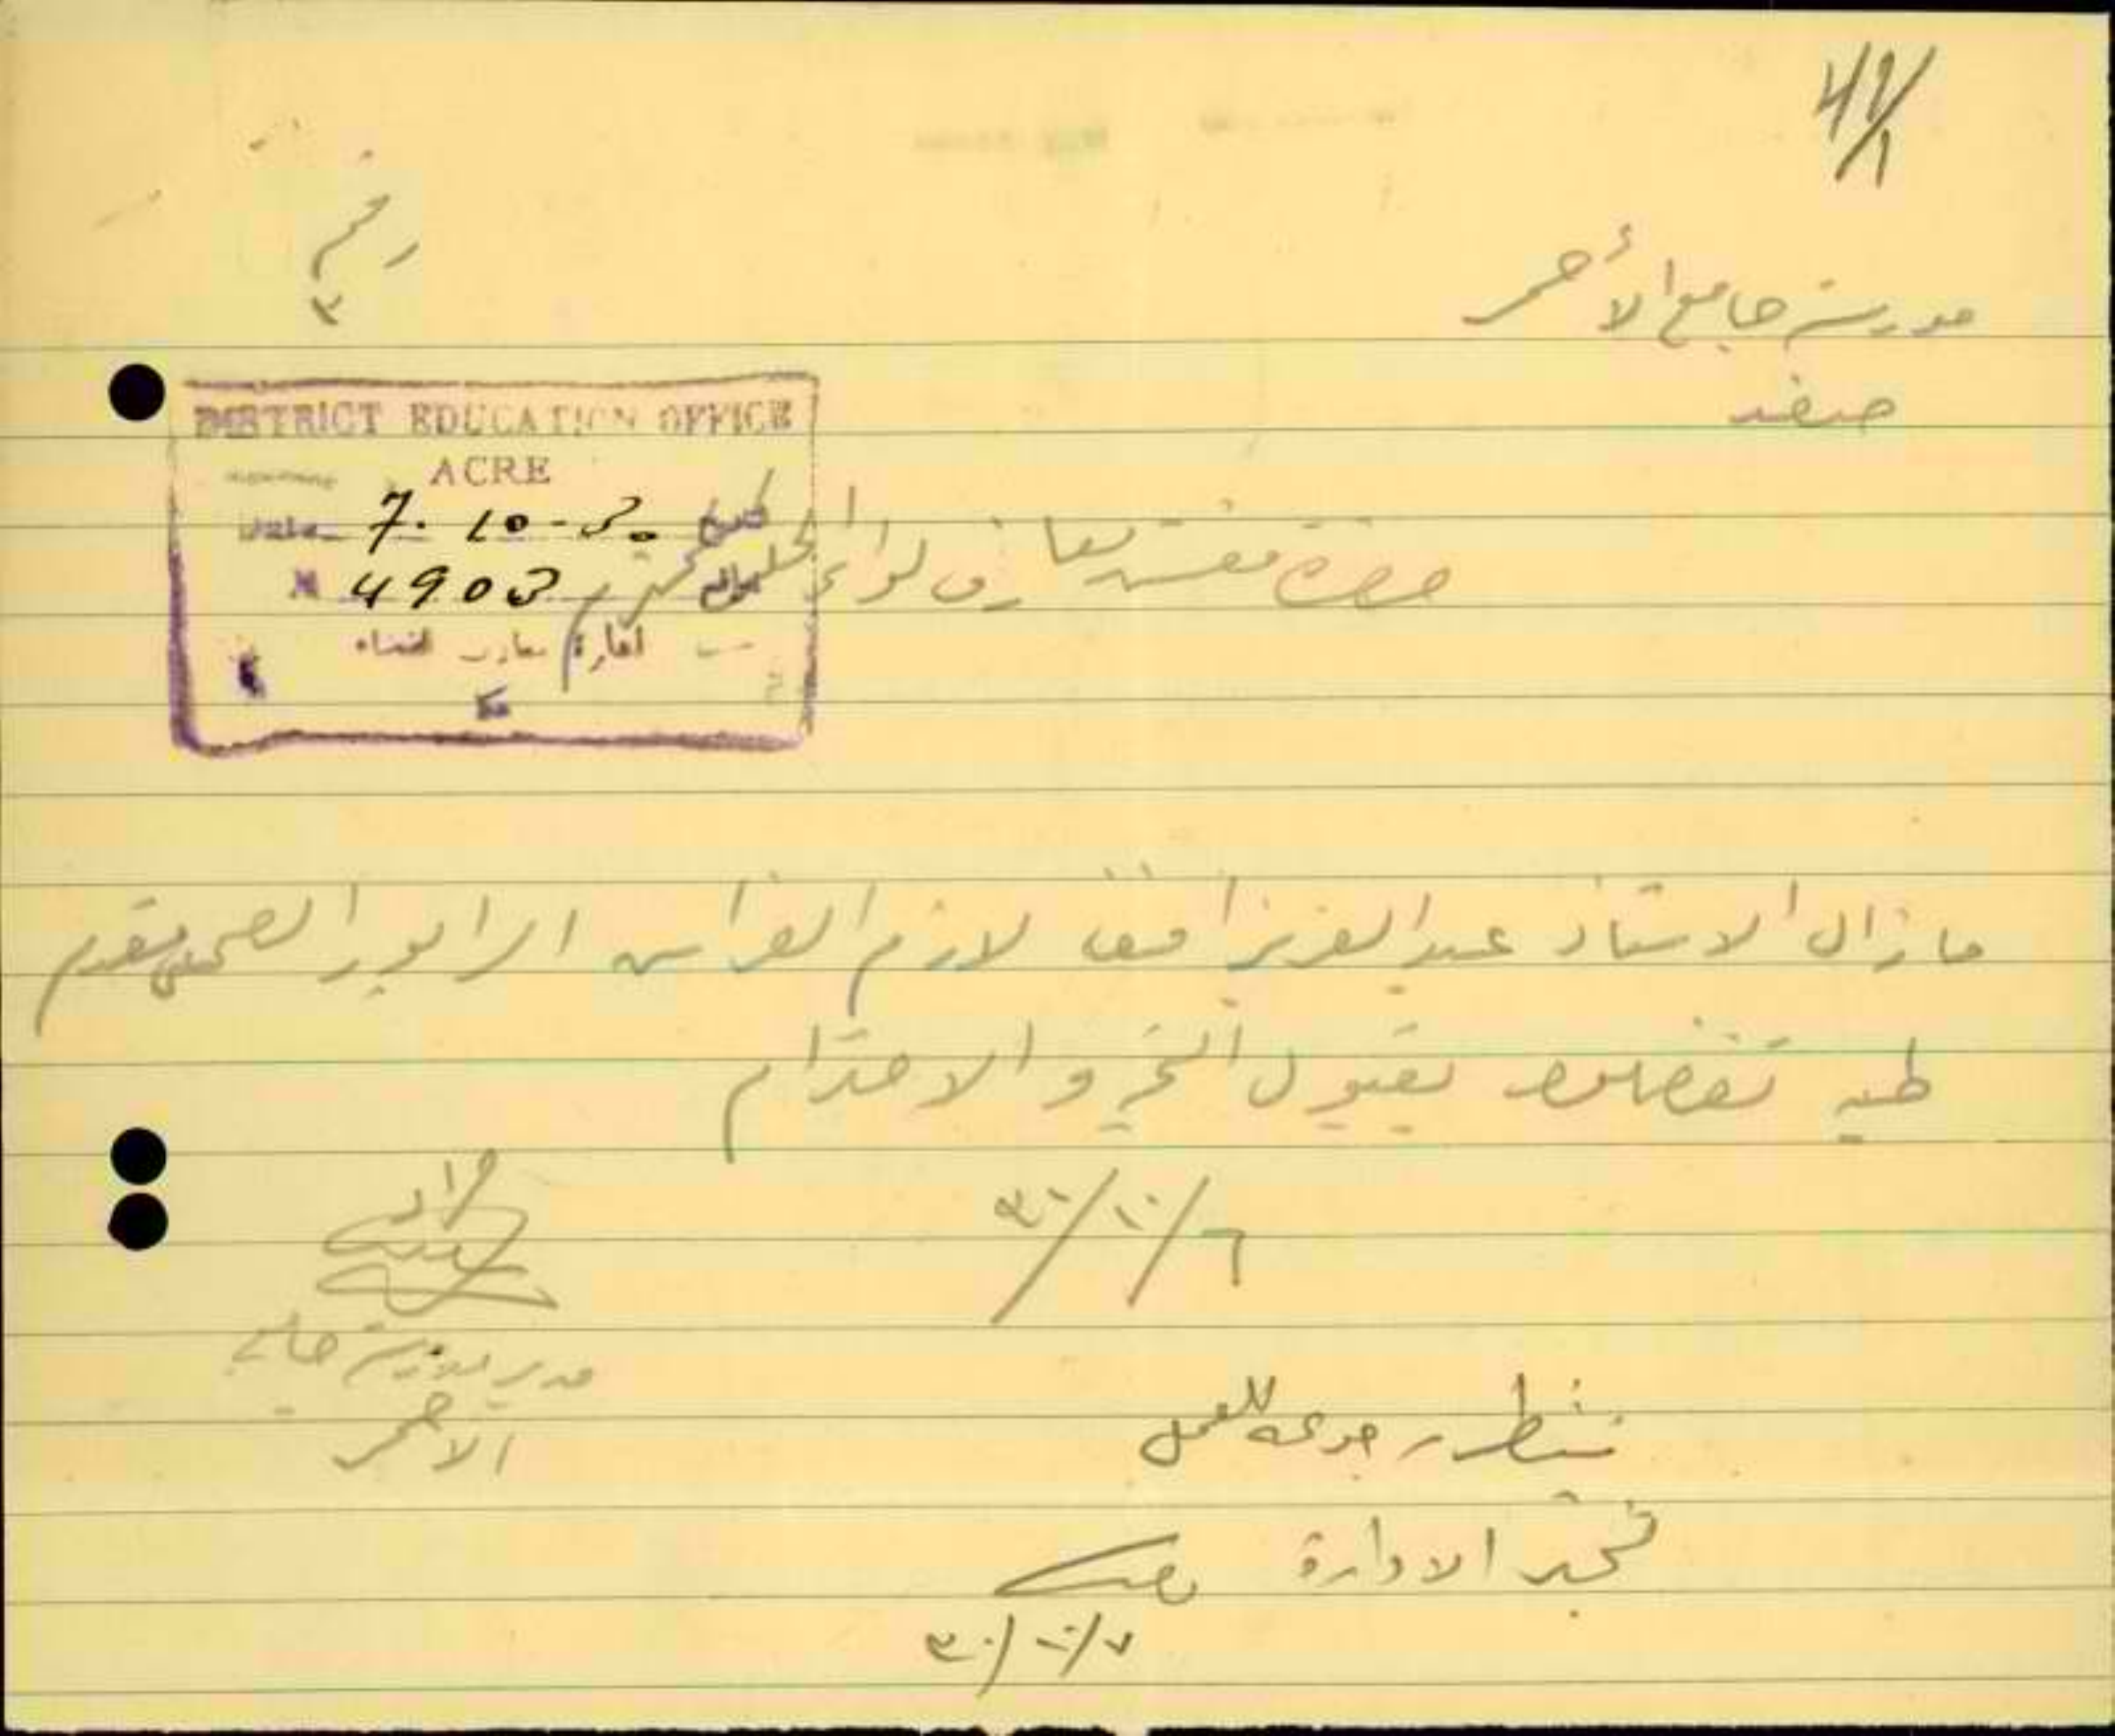 41/1
رقم
٣
مدرسة جامع الأحمر
صفد
DISTRICT EDUCATION OFFICE
ACRE
Date 7.10-30 تاريخ
4903
ادارة معارف قضاء
عكا
حضرة مفتش معارف لواء الجليل المحترم
ما زال الاستاذ عبد العزيز افندي لازم الفراش الرابور الصحي مقدم
طيه تفضلوا بقبول التحية والاحترام
٦/١٠/٣٠
مدير مدرسة جامع
الاحمر
ننتظر رجوعه للعمل
تخبر الادارة
٧/١٠/٣٠